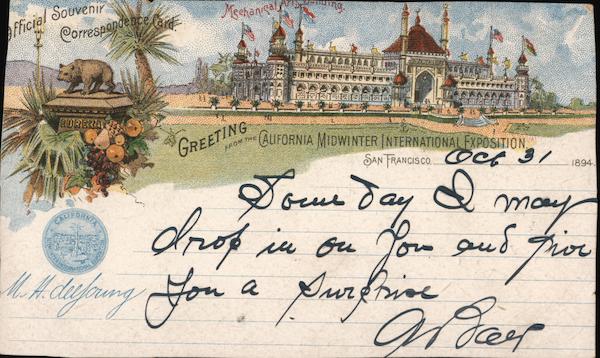 Official Souvenir
Correspondence Card.
Mechanical Arts Building.
EUREKA
GREETING FROM THE CALIFORNIA MIDWINTER INTERNATIONAL EXPOSITION,
SAN FRANCISCO. Oct 31 1894.
CALIFORNIA
Some day I may
drop in on You and give
You a Surprise
M. H. de Young